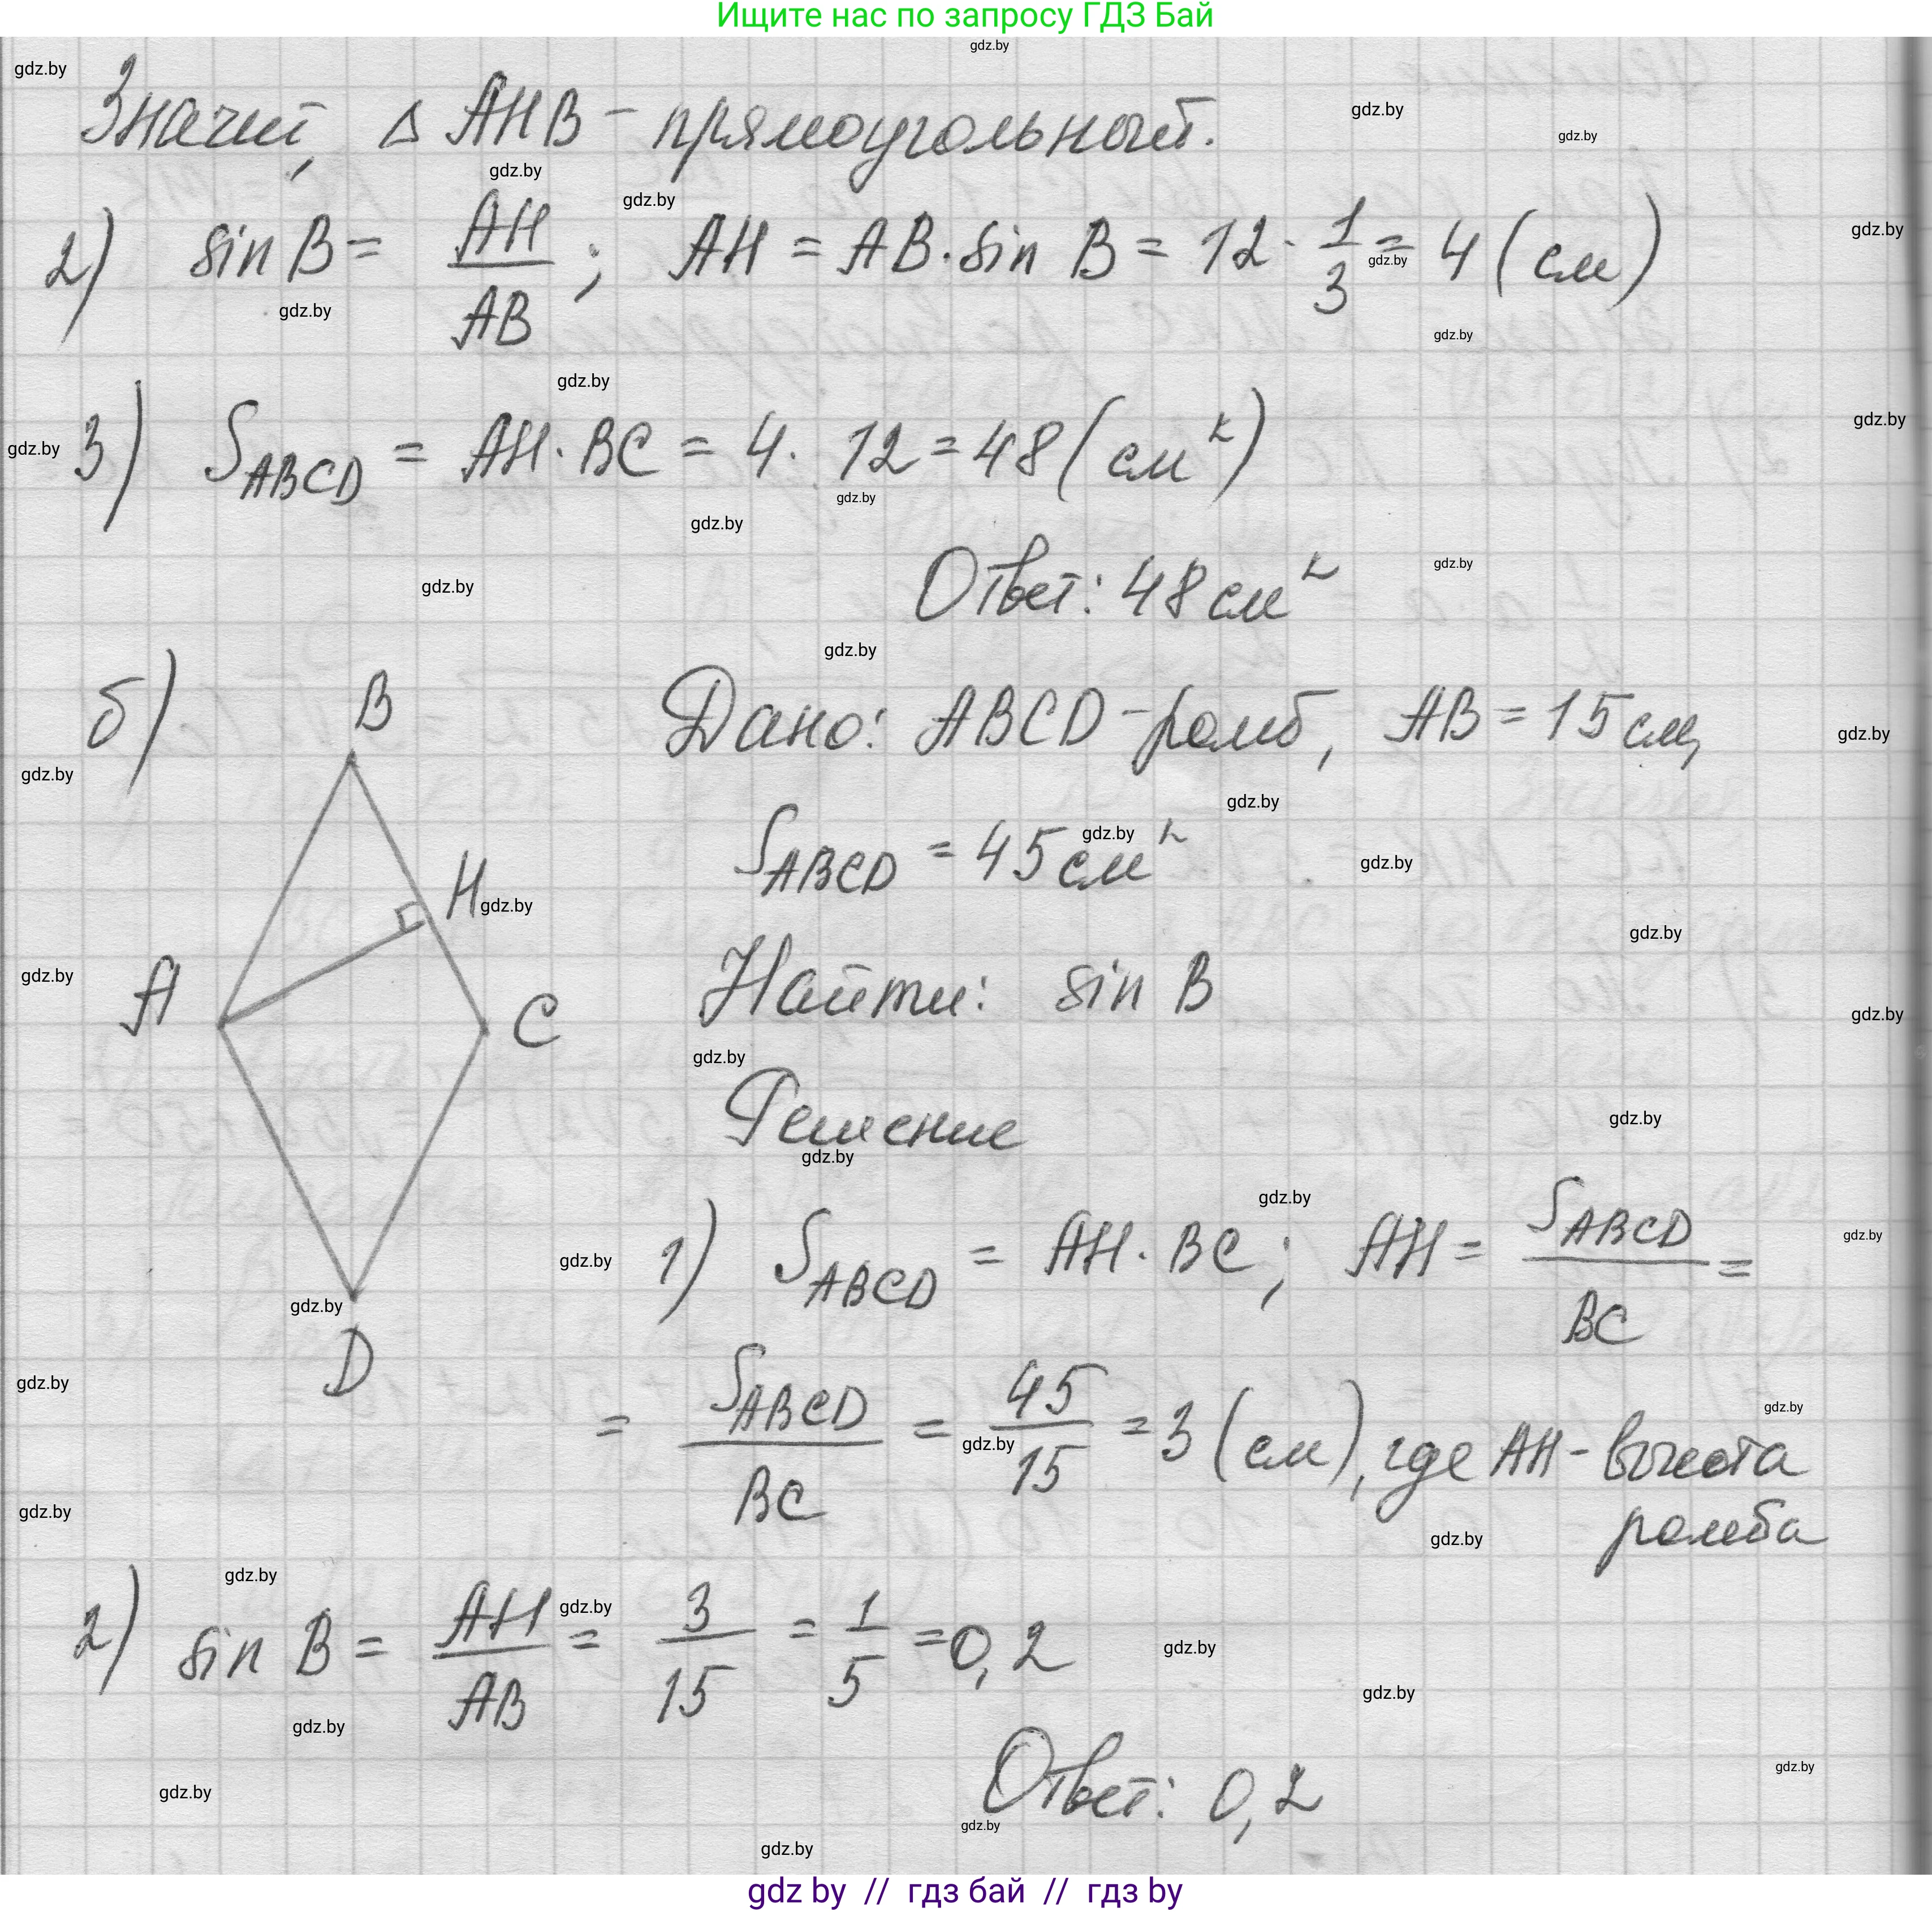 Ищите нас по запросу ГДЗ Бай
Значит, △ AHB - прямоугольный.
2) sin B = AH/AB; AH = AB · sin B = 12 · 1/3 = 4 (см)
3) S_ABCD = AH · BC = 4 · 12 = 48 (см²)
Ответ: 48 см²
б)
B
H
A
C
D
Дано: ABCD - ромб, AB = 15 см,
S_ABCD = 45 см²
Найти: sin B
Решение
1) S_ABCD = AH · BC; AH = S_ABCD/BC =
= S_ABCD/BC = 45/15 = 3 (см), где AH - высота
ромба
2) sin B = AH/AB = 3/15 = 1/5 = 0,2
Ответ: 0,2
gdz.by
gdz by // гдз бай // гдз by